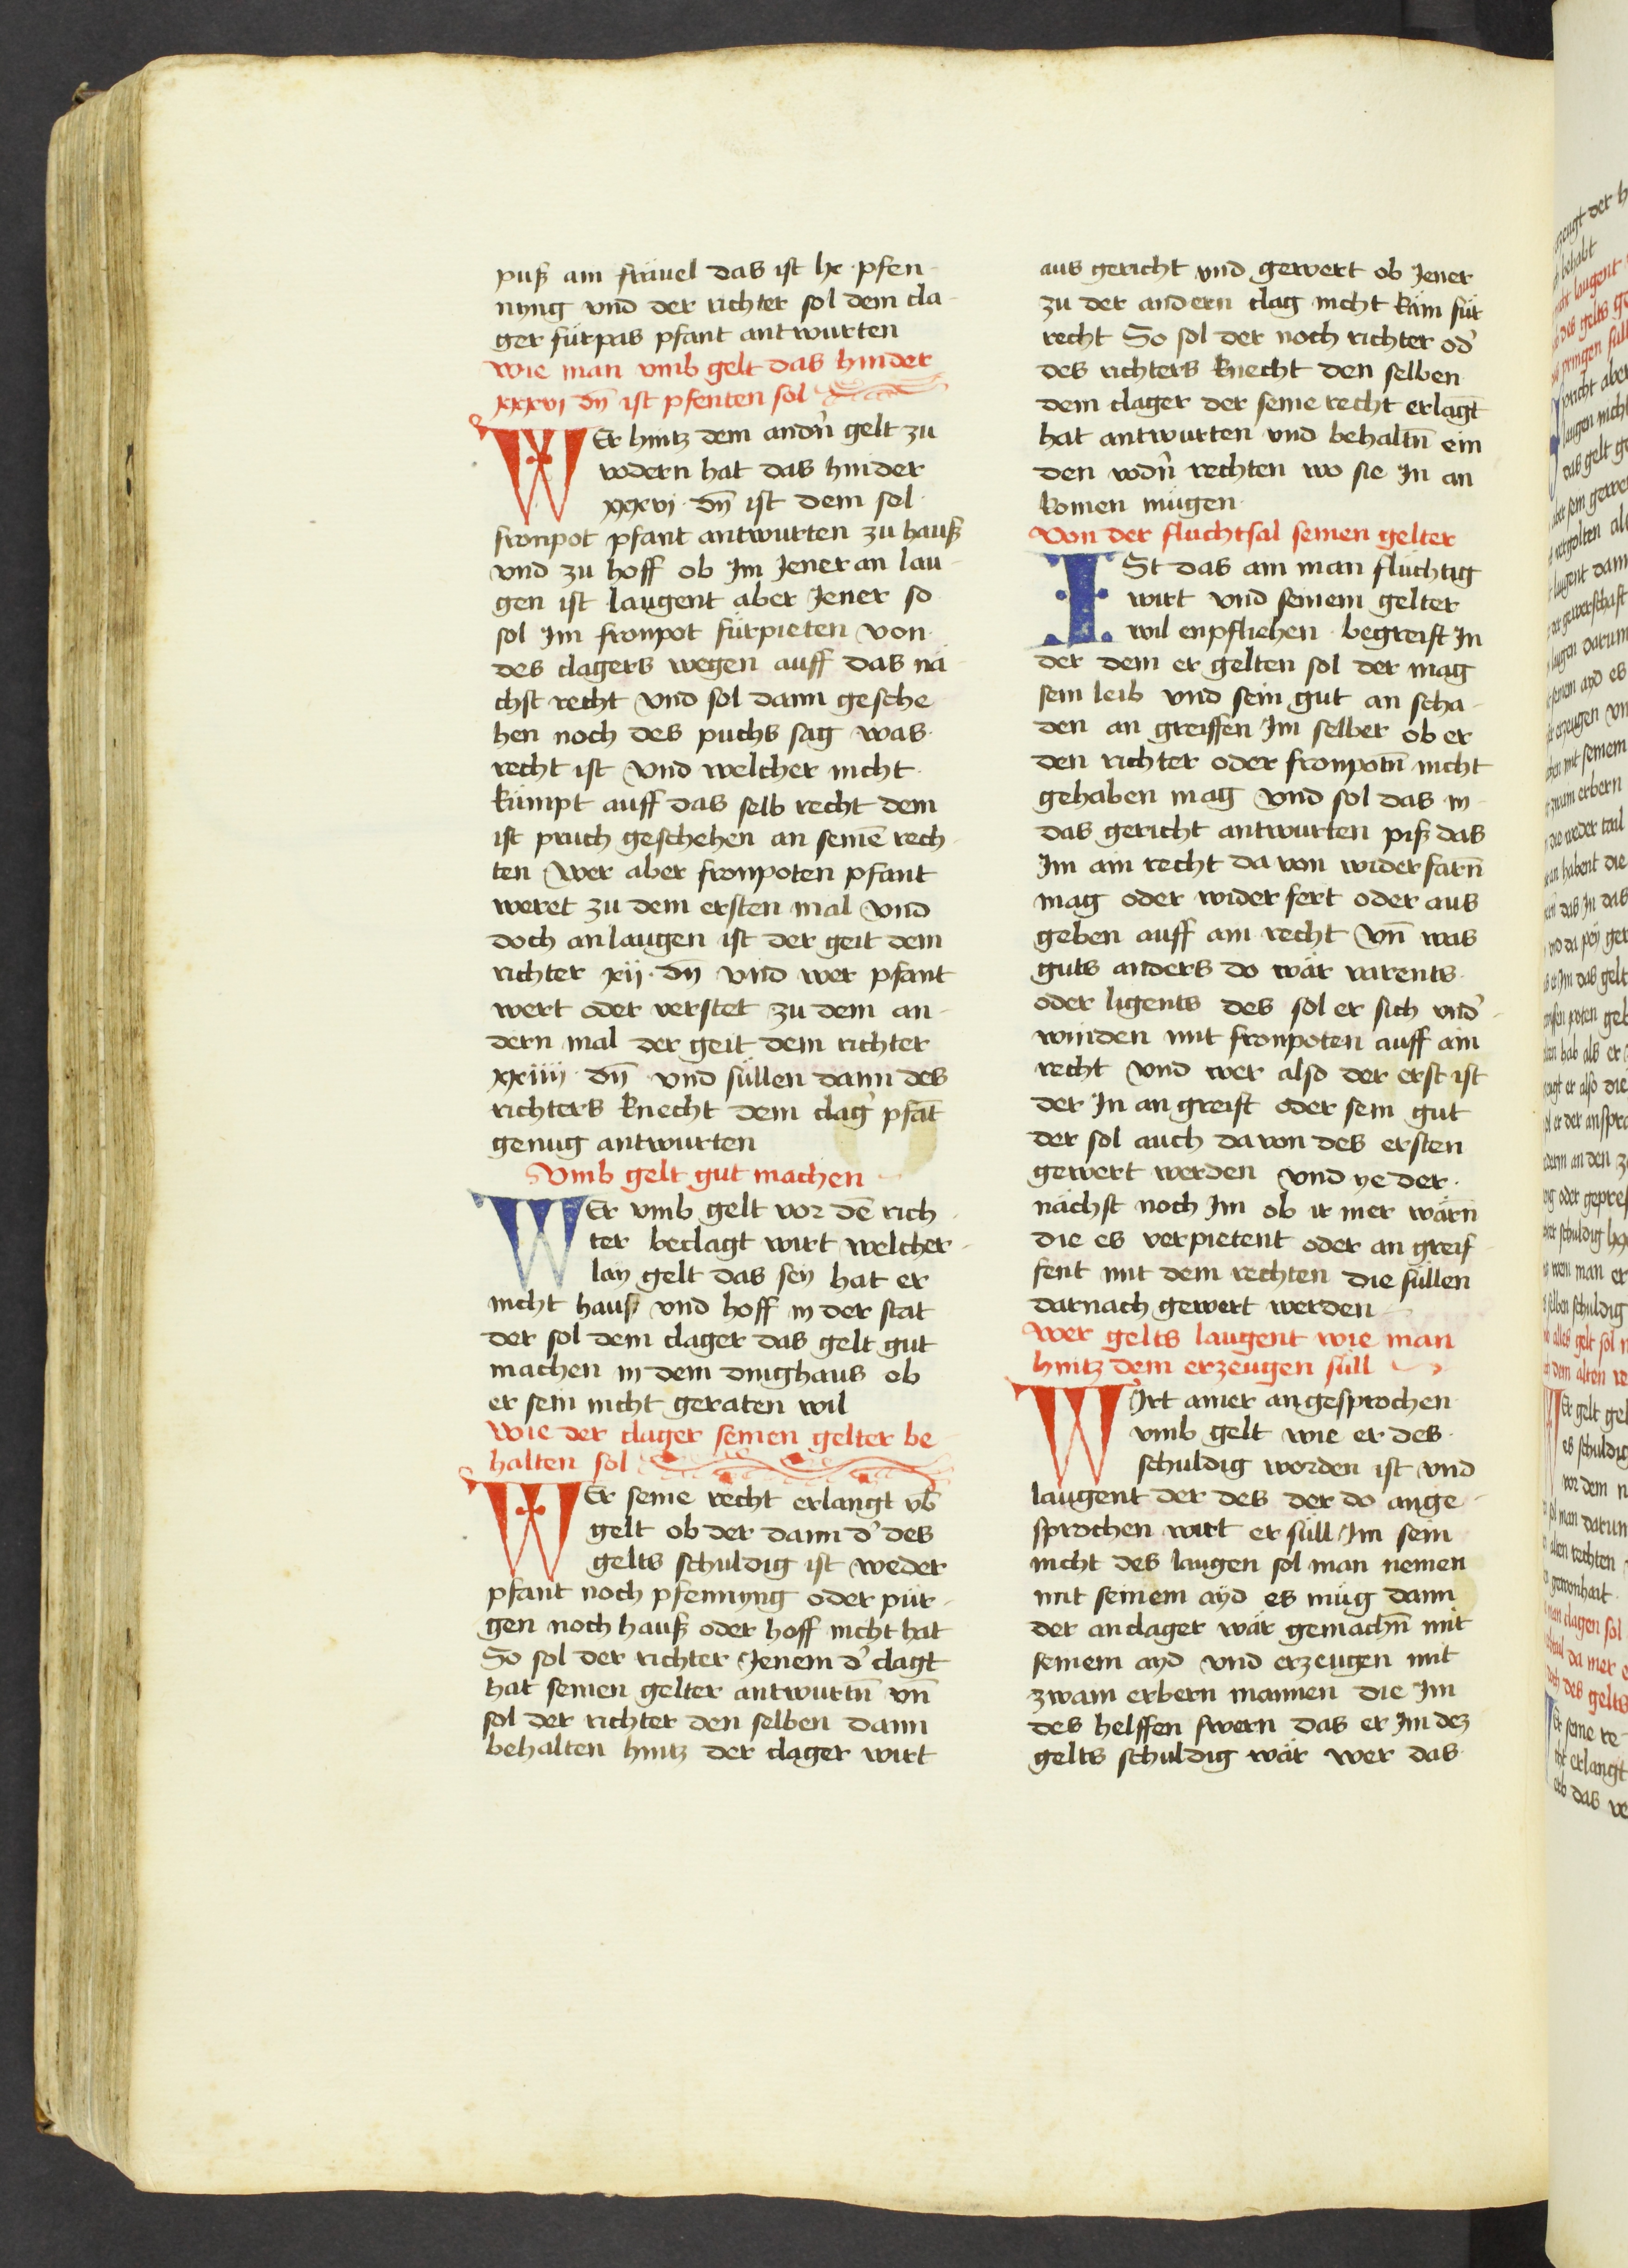 puß am fräuel das ist lx · pfen-
nyng vnd der richter sol dem cla-
ger fürpas pfant antwurten
Wie man vmb gelt das hinder
xxxvj dn̄ ist pfenten sol
WEr hintz dem andn̄ gelt zu
vodern hat das hinder
xxxvj · dn̄ ist dem sol
fronpot pfant antwurten zu hauß
vnd zu hoff ob Im Jener an lau-
gen ist laugent aber Jener so
sol Im fronpot fürpieten von
des clagers wegen auff das nä-
chst recht vnd sol dann gesche
hen noch des puchs sag was
recht ist vnd welcher nicht
kümpt auff das selb recht dem
ist pruch geschehen an seinē rech-
ten Wer aber fronpoten pfant
weret zu dem ersten mal vnd
doch an laugen ist der geit dem
richter xij · dn̄ vnd wer pfant
wert oder verstet zu dem an-
dern mal der geit dem richter
xxiiij · dn̄ vnd süllen dann des
richters knecht dem clag' pfāt
genug antwurten
Vmb gelt gut machen
WEr vmb gelt vor dē rich-
ter beclagt wirt welcher-
lay gelt das sey hat er
nicht hauß vnd hoff in der stat
der sol dem clager das gelt gut
machen in dem dinghaus ob
er sein nicht geraten wil
Wie der clager seinen gelter be
halten sol
WEr seine recht erlangt vb̄
gelt ob der dann d' des
gelts schuldig ist weder
pfant noch pfennyng oder pür-
gen noch hauß oder hoff nicht hat
So sol der richter Jenem d' clagt
hat seinen gelter antwurtn̄ vn̄
sol der richter den selben dann
behalten hintz der clager wirt
aus gericht vnd gewert ob Jener
zu der andern clag nicht käm für
recht So sol der noch richter od'
des richters knecht den selben
dem clager der seine recht erlagt
hat antwurten vnd behaltn̄ ein
den vodn̄ rechten wo sie In an
komen mügen
Von der fluchtsal seinen gelter
ISt das ain man flüchtig
wirt vnd seinem gelter
wil enpfliehen · begreift In
der dem er gelten sol der mag
sein leib vnd sein gut an scha-
den an greiffen Im selber ob er
den richter oder fronpotn̄ nicht
gehaben mag vnd sol das in
das gericht antwurten piß das
Im ain recht da von widerfarn̄
mag oder wider fert oder aus
geben auff ain recht Vn̄ was
guts anders do wär varents
oder ligents des sol er sich vnd'-
winden mit fronpoten auff ain
recht vnd wer also der erst ist
der In an greift oder sein gut
der sol auch da von des ersten
gewert werden vnd ye der
nächst noch Im ob ir mer wärn̄
die es verpietent oder an greif-
fent mit dem rechten die süllen
darnach gewert werden
Wer gelts laugent wie man
hintz dem erzeugen süll
WIrt ainer angesprochen
vmb gelt wie er des
schuldig worden ist vnd
laugent der des der do ange-
sprochen wirt er süll Im sein
nicht des laugen sol man nemen
mit seinem ayd es müg dann
der anclager wär gemachn̄ mit
seinem ayd vnd erzeugen mit
zwain erbern mannen die Im
des helffen swern das er Im dez
gelts schuldig wär wer das